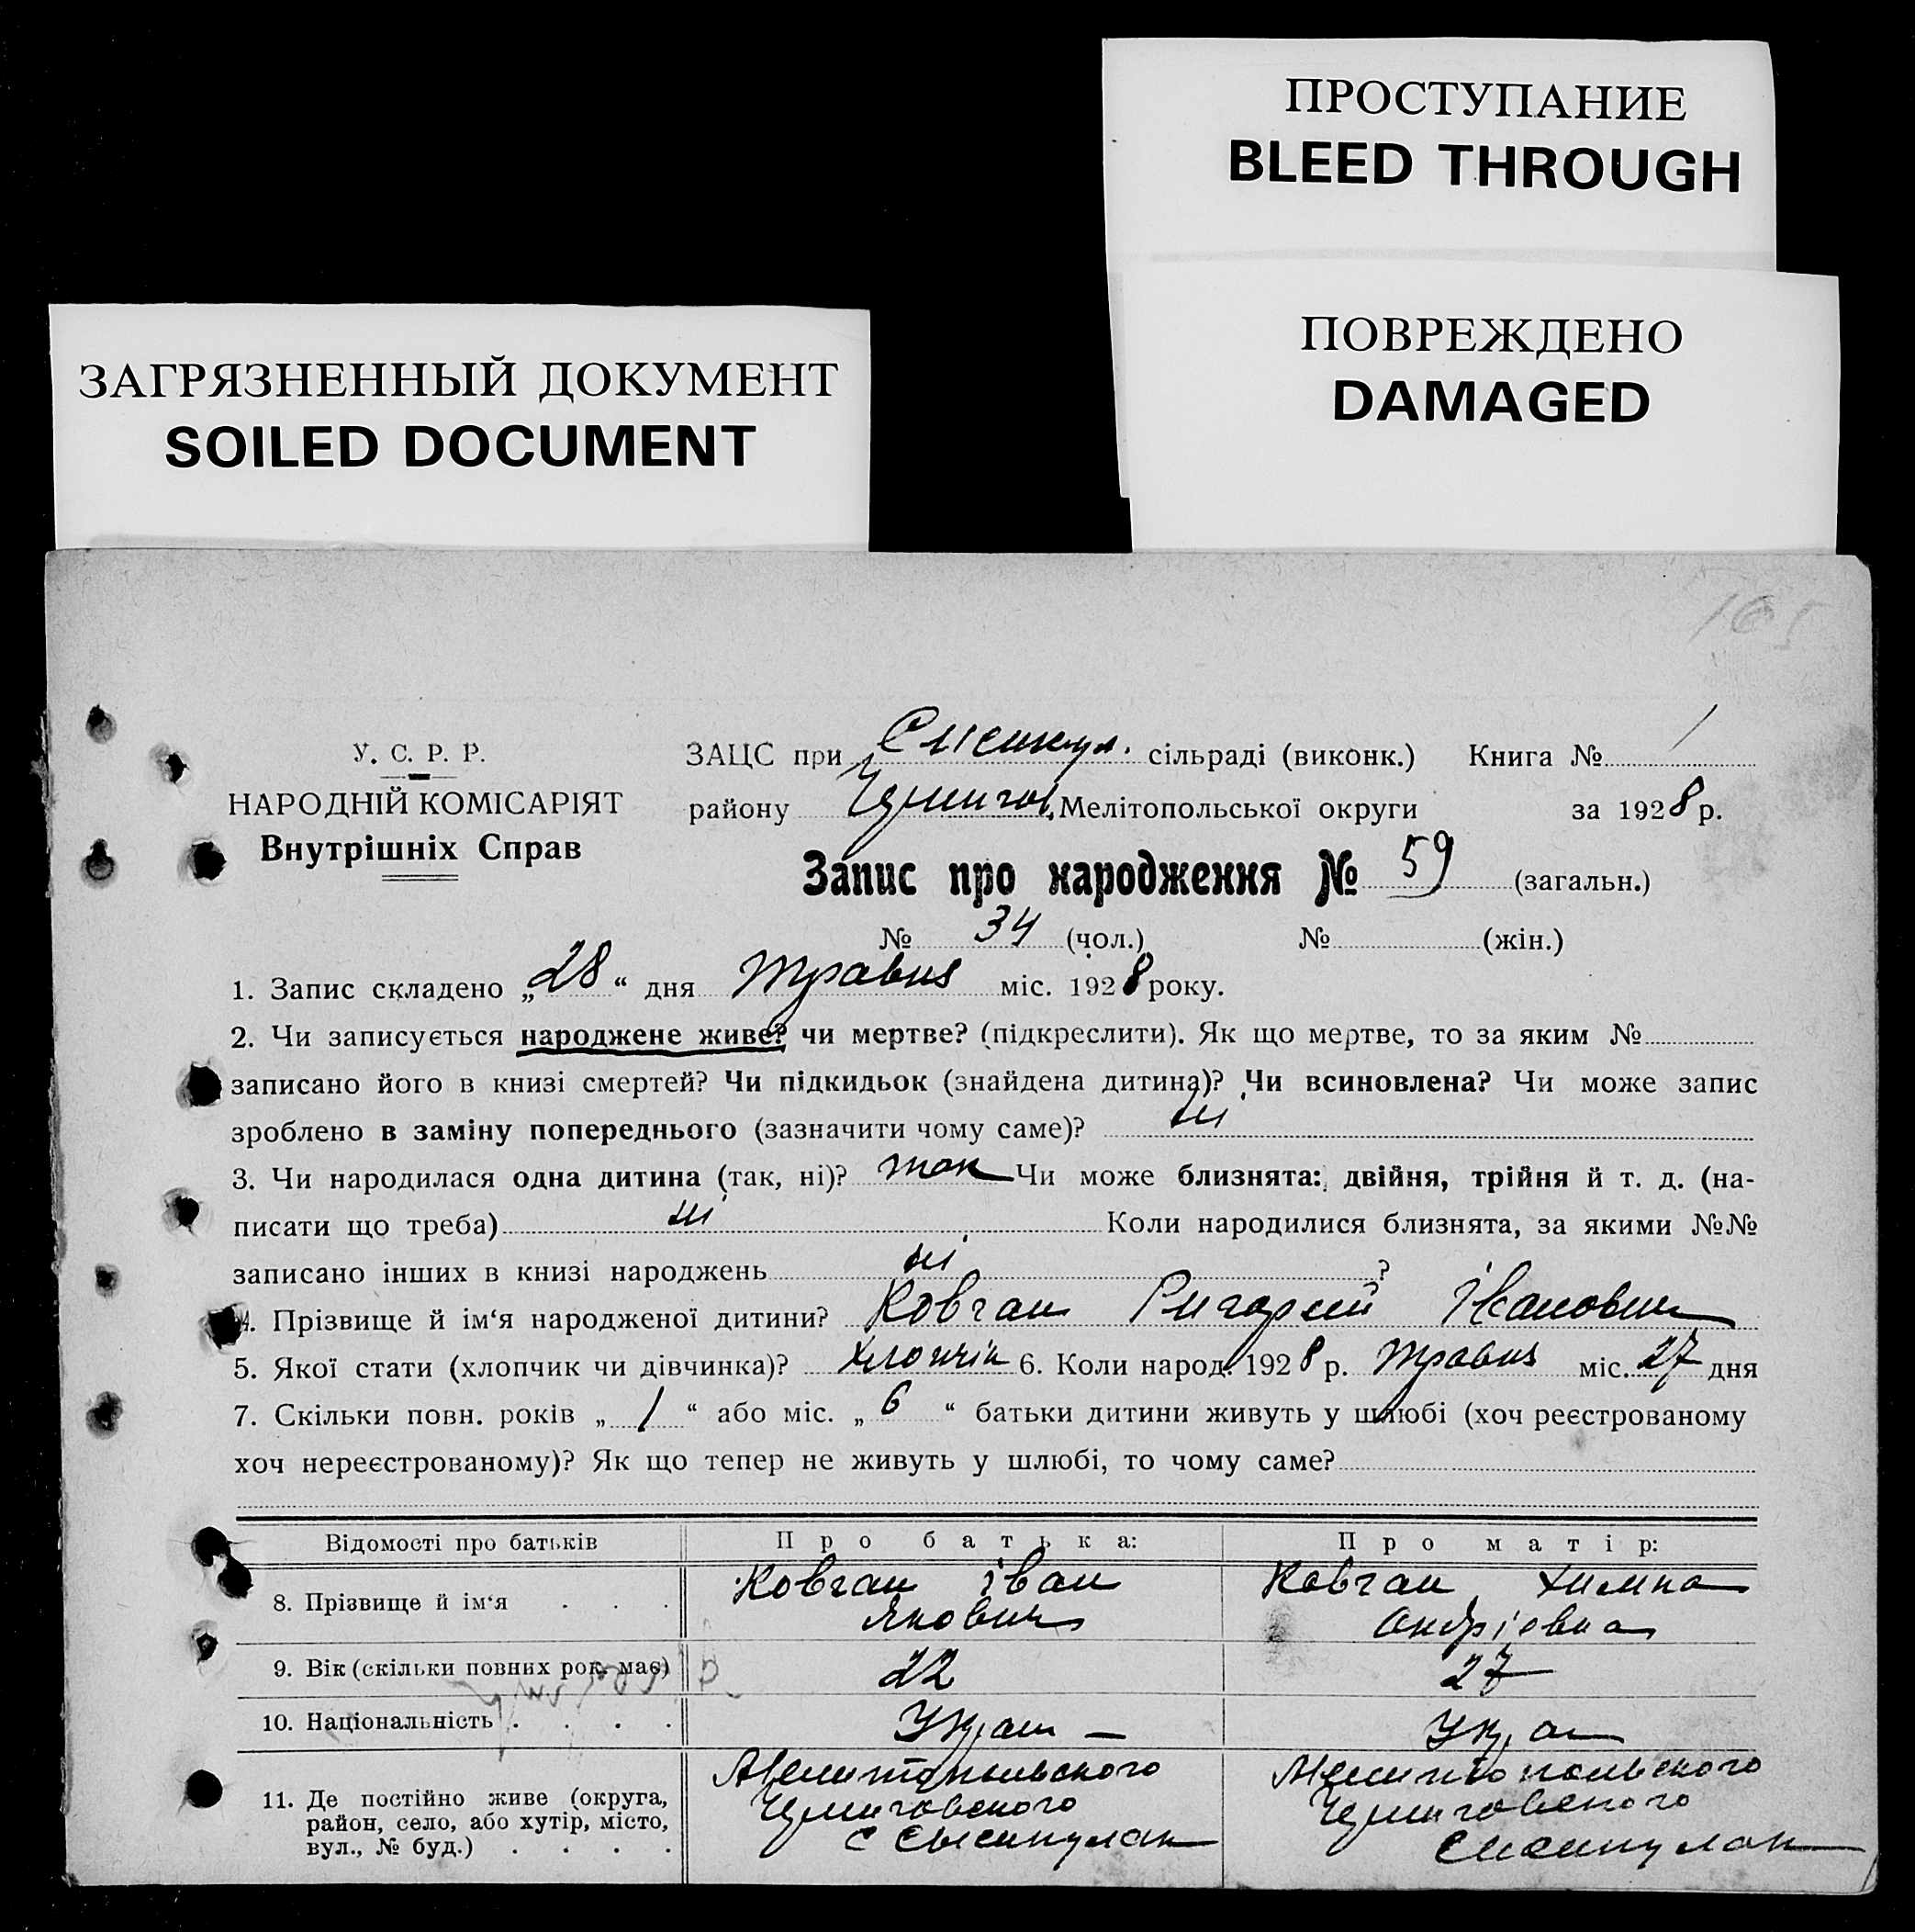 ПРОСТУПАНИЕ
BLEED THROUGH
ПОВРЕЖДЕНО
DAMAGED
ЗАГРЯЗНЕННЫЙ ДОКУМЕНТ
SOILED DOCUMENT
165
У. С. Р. Р.
НАРОДНІЙ КОМІСАРІЯТ
Внутрішніх Справ
ЗАЦС при сільраді (виконк.) Книга № 1
району Чернигов. Мелітопольської округи за 1928 р.
Запис про народження № 59 (загальн.)
№ 34 (чол.) № (жін.)
1. Запис складено „28“ дня Травня міс. 1928 року.
2. Чи записується народжене живе? чи мертве? (підкреслити). Як що мертве, то за яким №
записано його в книзі смертей? Чи підкидьок (знайдена дитина)? Чи всиновлена? Чи може запис
зроблено в заміну попереднього (зазначити чому саме)? ні
3. Чи народилася одна дитина (так, ні)? так Чи може близнята: двійня, трійня й т. д. (на-
писати що треба) ні Коли народилися близнята, за якими №№
записано інших в книзі народжень ні ?
4. Прізвище й ім‘я народженої дитини? Ковган Григорий Іванович
5. Якої стати (хлопчик чи дівчинка)? хлопчік 6. Коли народ. 1928 р. Травня міс. 27 дня
7. Скільки повн. років „1“ або міс. „6“ батьки дитини живуть у шлюбі (хоч реєстрованому
хоч нереєстрованому)? Як що тепер не живуть у шлюбі, то чому саме?
Відомості про батьків Про батька: Про матір:
8. Прізвище й ім‘я . . . Ковган Іван Ковган
Якович Андрієвна
9. Вік (скільки повних рок. має) 22 27
10. Національність . . . . Укра Укра
11. Де постійно живе (округа, район, село, або хутір, місто, вул., № буд.) . . . .
Мелитопольского Мелитопольского
Черниговского Черниговского
с